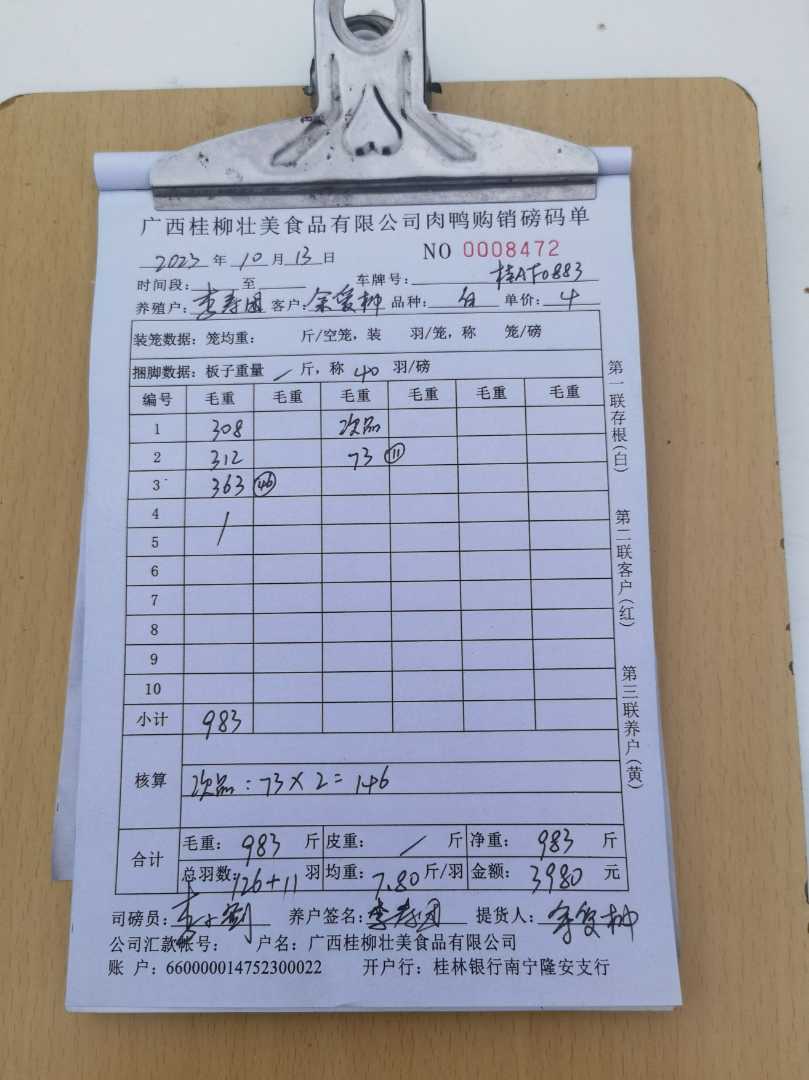 广西桂柳壮美食品有限公司肉鸭购销磅码单
2023 年 10 月 13 日 NO 0008472
时间段: 至 车牌号: 桂AF0883
养殖户: 李寿团 客户: 余爱种 品种: 白 单价: 4
装笼数据: 笼均重: 斤/空笼, 装 羽/笼, 称 笼/磅
捆脚数据: 板子重量 / 斤, 称 40 羽/磅
编号 毛重 毛重 毛重 毛重 毛重 毛重
1 308 次品
2 312 73 ⑪
3 363 ㊻
4 /
5
6
7
8
9
10
小计 983
核算 次品: 73×2=146
合计 毛重: 983 斤 皮重: / 斤 净重: 983 斤
总羽数: 126+11 羽 均重: 7.80 斤/羽 金额: 3980 元
司磅员: 养户签名: 李寿团 提货人: 余爱种
公司汇款帐号: 户名: 广西桂柳壮美食品有限公司
账 户: 660000014752300022 开户行: 桂林银行南宁隆安支行
第一联存根(白)
第二联客户(红)
第三联养户(黄)